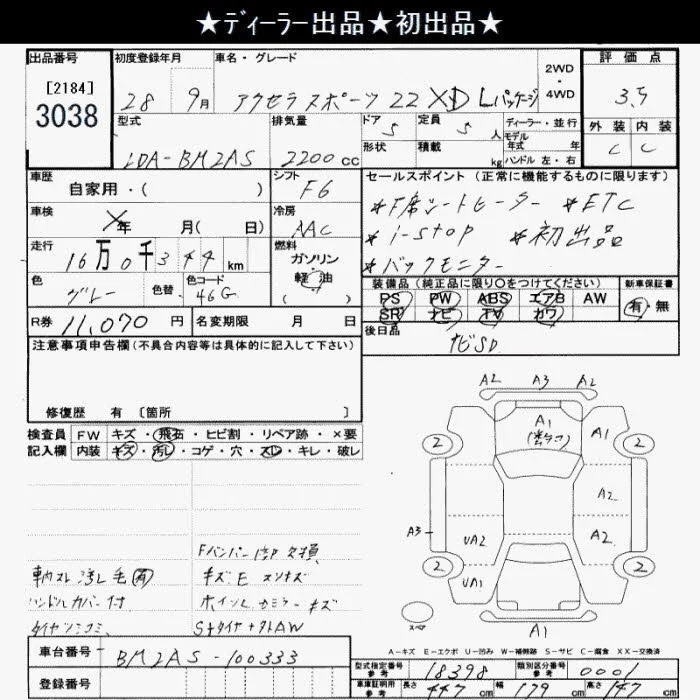 ★ディーラー出品★初出品★
出品番号 初度登録年月 車名・グレード 2WD・4WD 評価点
[2184]
3038 28 9月 アクセラスポーツ 22 XD Lパッケージ 3.5
型式 排気量 ドア 5 定員 5 人 ディーラー・並行 外装 内装
LDA-BM2AS 2200cc 形状 積載 kg モデル年式 年 C C
ハンドル 左・右
車歴 シフト セールスポイント (正常に機能するものに限ります)
自家用・( ) F6 *F席シートヒーター *ETC
車検 年 月( 日) 冷房 AAC *i-stop *初出品
走行 16万0千344km 燃料 ガソリン 軽油 ( ) *バックモニター
色 グレー 色替 色コード 46G 装備品 (純正品に限り○をつけてください) 新車保証書
PS PW ABS エアB AW 有・無
R券 11,070円 名変期限 月 日 SR ナビ TV カワ
注意事項申告欄(不具合内容等は具体的に記入して下さい) 後日品
ナビSD
修復歴 有 〔箇所 〕
検査員 FW キズ・飛石・ヒビ割・リペア跡・×要
記入欄 内装 キズ・汚レ・コゲ・穴・スレ・キレ・破レ
A2 A3 A2
A1 A1
2 2
A2
A3 UA2 A2
2 2
UA1
スペア
A1
Fバンパー 欠損
内スレ 汚レ 毛 有 キズE スリキズ
ハンドルカバー付 ホイール ミラー キズ
Sタイヤ+外AW
A-キズ E-エクボ U-凹み W-補修跡 S-サビ C-腐食 XX-交換済
車台番号 BM2AS-100333
登録番号
型式指定番号 参考 18398 類別区分番号 参考 0001
車庫証明用 参考 長さ 447cm 幅 179cm 高さ 147cm